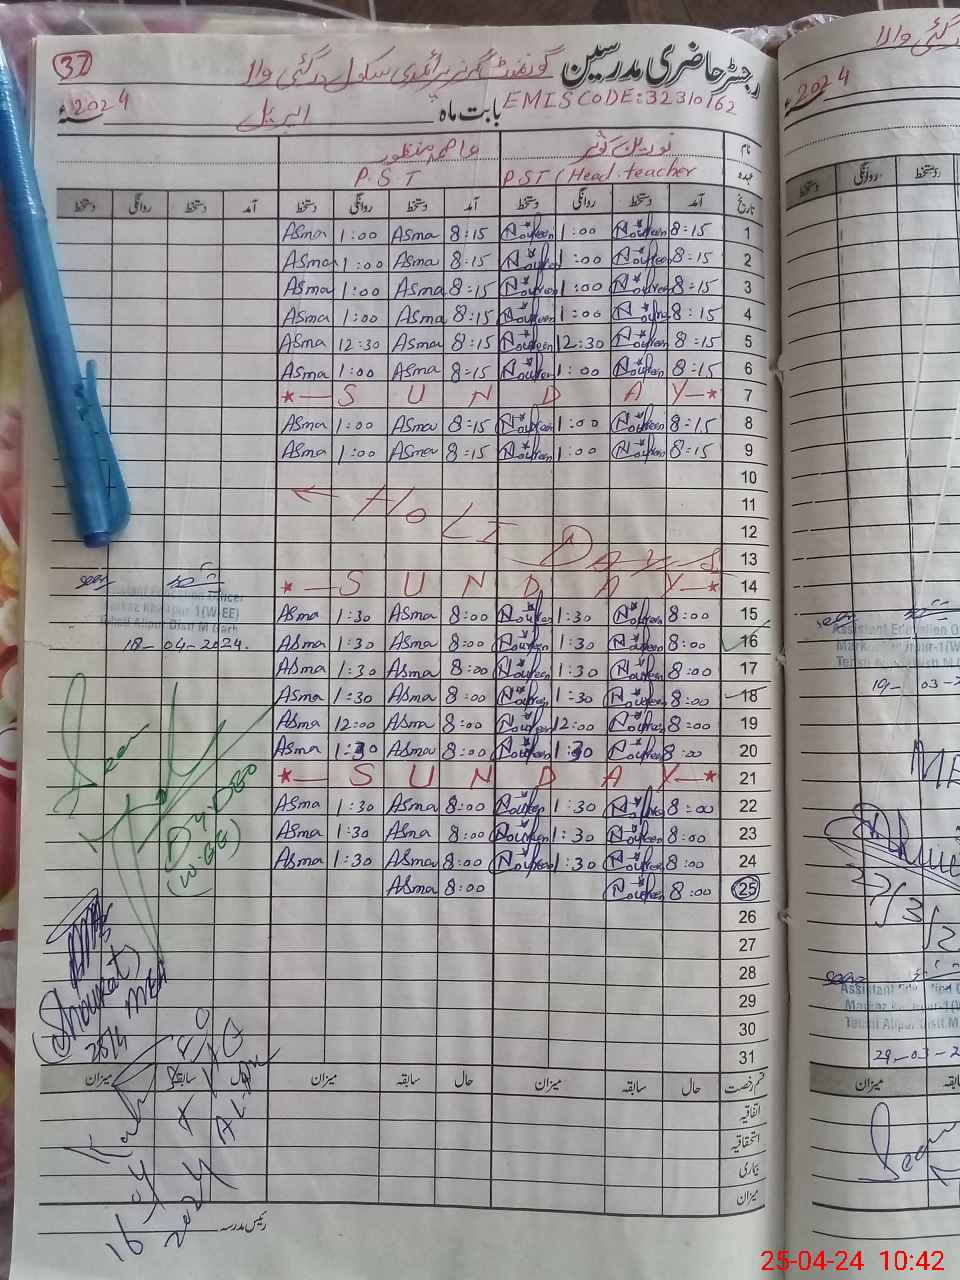 رجسٹر حاضری مدرسین گورنمنٹ گرلز پرائمری سکول درگئی والا
37
EMIS CODE: 32310162
بابت ماہ اپریل 2024ء
نام نورین کوثر عاصمہ منظور
عہدہ PST (Head teacher P.S.T
تاریخ آمد دستخط روانگی دستخط آمد دستخط روانگی دستخط آمد دستخط روانگی دستخط
Asma 1:00 Asma 8:15 Noureen 1:00 Noureen 8:15 1
Asma 1:00 Asma 8:15 Noureen 1:00 Noureen 8:15 2
Asma 1:00 Asma 8:15 Noureen 1:00 Noureen 8:15 3
Asma 1:00 Asma 8:15 Noureen 1:00 Noureen 8:15 4
Asma 12:30 Asma 8:15 Noureen 12:30 Noureen 8:15 5
Asma 1:00 Asma 8:15 Noureen 1:00 Noureen 8:15 6
*—S U N D A Y—* 7
Asma 1:00 Asma 8:15 Noureen 1:00 Noureen 8:15 8
Asma 1:00 Asma 8:15 Noureen 1:00 Noureen 8:15 9
10
HOLIDAYS 11
12
13
*—S U N D A Y—* 14
Asma 1:30 Asma 8:00 Noureen 1:30 Noureen 8:00 15
Asma 1:30 Asma 8:00 Noureen 1:30 Noureen 8:00 16
Asma 1:30 Asma 8:00 Noureen 1:30 Noureen 8:00 17
Asma 1:30 Asma 8:00 Noureen 1:30 Noureen 8:00 18
Asma 12:00 Asma 8:00 Noureen 12:00 Noureen 8:00 19
Asma 1:30 Asma 8:00 Noureen 1:30 Noureen 8:00 20
*—S U N D A Y—* 21
Asma 1:30 Asma 8:00 Noureen 1:30 Noureen 8:00 22
Asma 1:30 Asma 8:00 Noureen 1:30 Noureen 8:00 23
Asma 1:30 Asma 8:00 Noureen 1:30 Noureen 8:00 24
Asma 8:00 Noureen 8:00 25
26
27
28
29
30
31
ختم رخصت حال سابقہ میزان حال سابقہ میزان حال سابقہ میزان
اتفاقیہ
استحقاقیہ
بیماری
میزان
رئیس مدرسہ
seen
Assistant Education Officer
Markaz Khanpur-1(W-EE)
Tehsil Alipur Distt M.Garh
18-04-2024.
Seen
Dy DEO
(W-EE)
Shoukat
MEA
16-04
2024
2024
seen
Assistant Education O
19-03-2
seen
Assistant
Tehsil Alipur Distt M
29-03-2
میزان
Seen
25-04-24 10:42